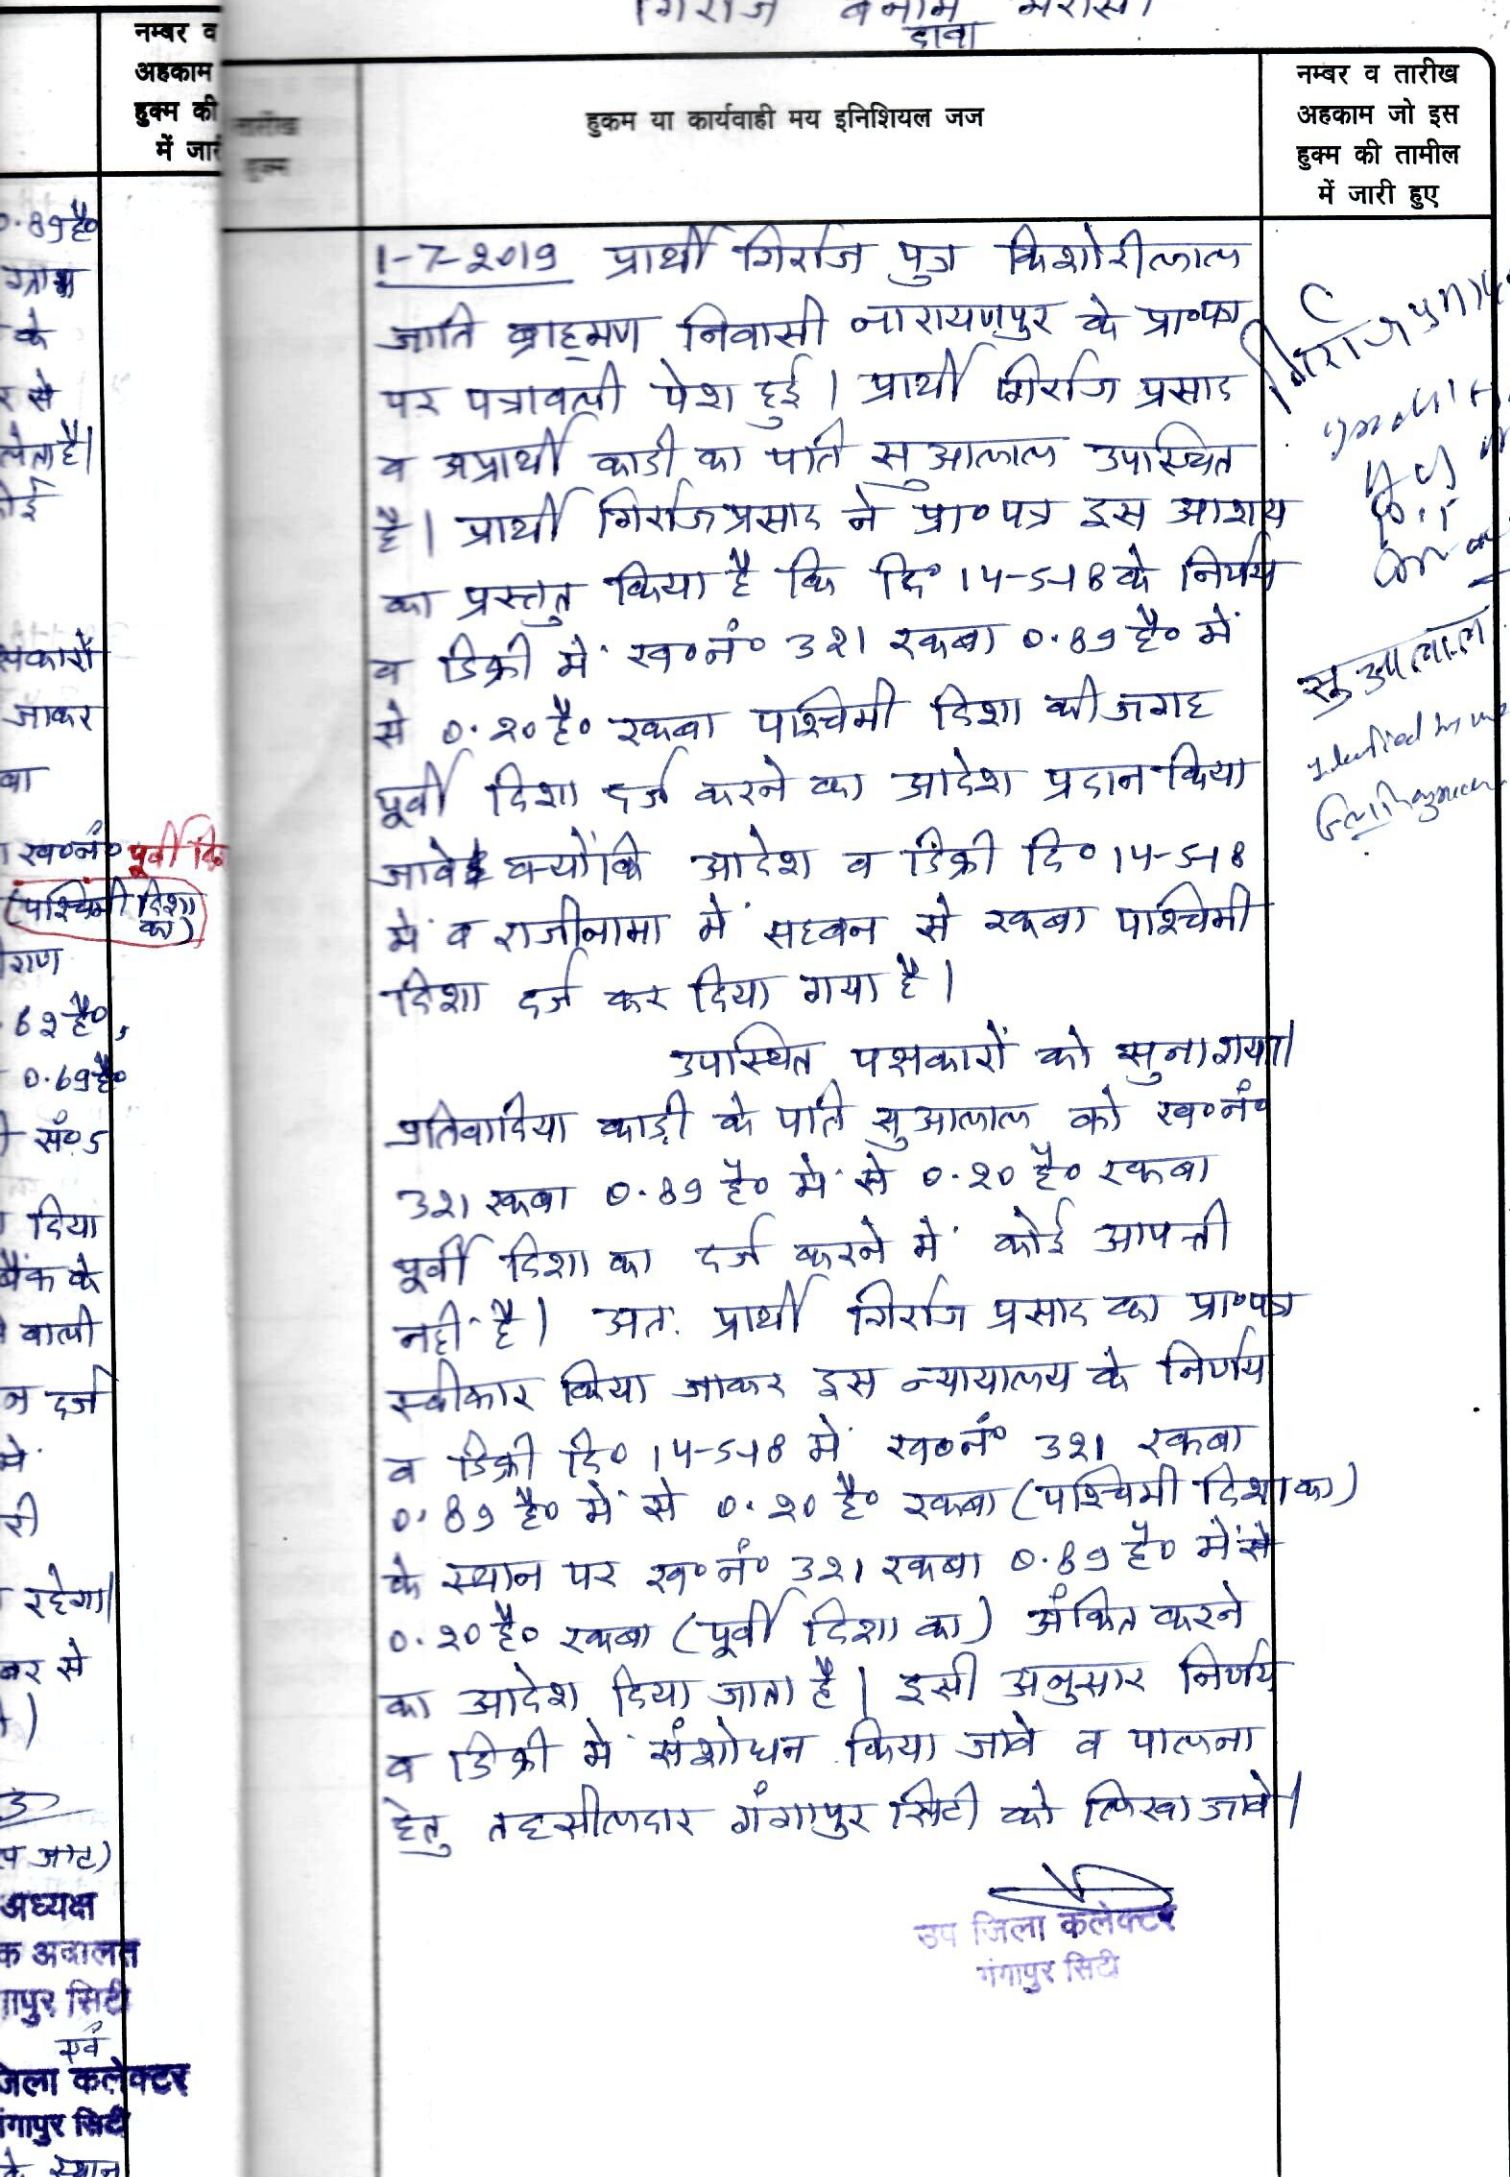 गिर्राज बनाम
दावा
नम्बर व
अहकाम
हुक्म की
में जारी
तारीख
हुक्म
हुकम या कार्यवाही मय इनिशियल जज
नम्बर व तारीख
अहकाम जो इस
हुक्म की तामील
में जारी हुए
1-7-2019 प्रार्थी गिर्राज पुत्र किशोरीलाल
जाति ब्राह्मण निवासी नारायणपुर के प्रा०पत्र
पर पत्रावली पेश हुई। प्रार्थी गिर्राज प्रसाद
व अप्रार्थी काडी का पति सुआलाल उपस्थित
है। प्रार्थी गिर्राज प्रसाद ने प्रा०पत्र इस आशय
का प्रस्तुत किया है कि दि० 14-5-18 के निर्णय
व डिक्री में ख०नं० 321 रकबा 0.89 है० में
से 0.20 है० रकबा पश्चिमी दिशा की जगह
पूर्वी दिशा दर्ज करने का आदेश प्रदान किया
जावे क्योंकि आदेश व डिक्री दि० 14-5-18
में व राजीनामा में सहवन से रकबा पश्चिमी
दिशा दर्ज कर दिया गया है।
उपस्थित पक्षकारों को सुना गया।
प्रतिवादिया काडी के पति सुआलाल को ख०नं०
321 रकबा 0.89 है० में से 0.20 है० रकबा
पूर्वी दिशा का दर्ज करने में कोई आपत्ती
नहीं है। अतः प्रार्थी गिर्राज प्रसाद का प्रा०पत्र
स्वीकार किया जाकर इस न्यायालय के निर्णय
व डिक्री दि० 14-5-18 में ख०नं० 321 रकबा
0.89 है० में से 0.20 है० रकबा (पश्चिमी दिशा का)
के स्थान पर ख०नं० 321 रकबा 0.89 है० में से
0.20 है० रकबा (पूर्वी दिशा का) अंकित करने
का आदेश दिया जाता है। इसी अनुसार निर्णय
व डिक्री में संशोधन किया जावे व पालना
हेतु तहसीलदार गंगापुर सिटी को लिखा जावे।
उप जिला कलेक्टर
गंगापुर सिटी
गिर्राज
सुआलाल
Identified by me
0.89 है०
के
र से
लेता है।
जाकर
ख०नं० पूर्वी दि
(पश्चिमी दिशा
का)
0.69 है०
सं० 5
दिया
बैंक के
वाली
दर्ज
में
री
रहेगा।
से
जाट)
अध्यक्ष
क अदालत
गापुर सिटी
एवं
जिला कलेक्टर
गंगापुर सिटी
के स्थान